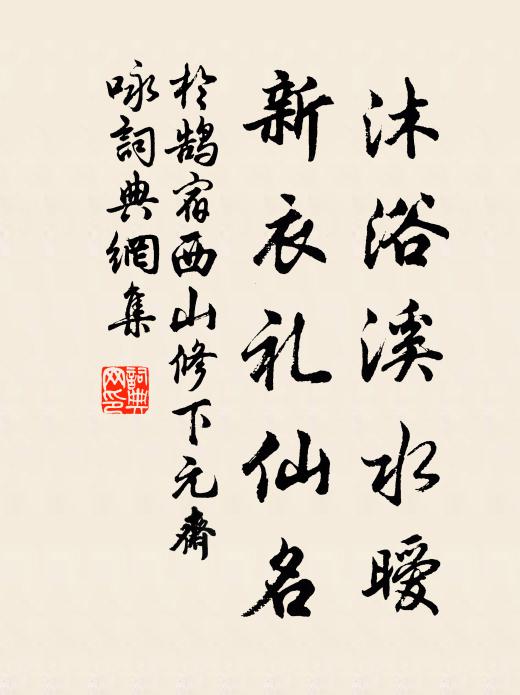 沐浴溪水暖
新衣礼仙名
於鹄宿西山修下元斋
咏詞典網集
詞典网印